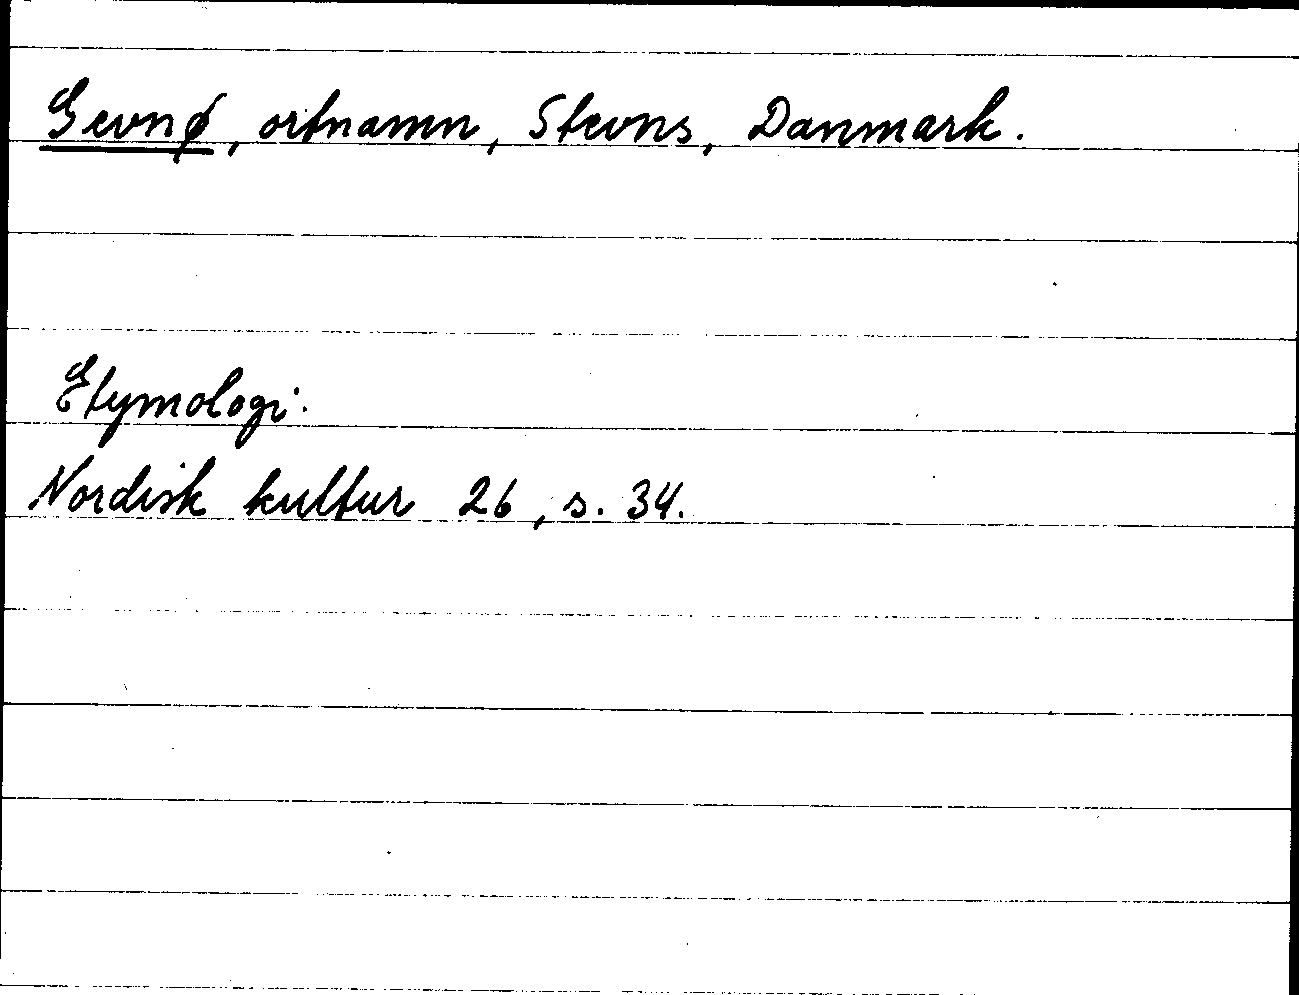 Gevnø, ortnamn, Stevns, Danmark.
Etymologi.
Nordisk kultur 26, s. 34.